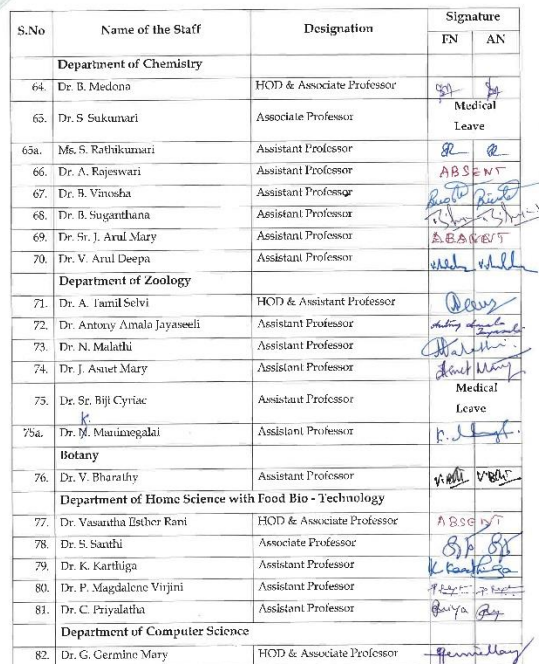 S.No Name of the Staff Designation Signature
FN AN
Department of Chemistry
64. Dr. B. Medona HOD & Associate Professor
65. Dr. S Sukumari Associate Professor Medical Leave
65a. Ms. S. Rathikumari Assistant Professor
66. Dr. A. Rajeswari Assistant Professor ABSENT
67. Dr. B. Vinosha Assistant Professor
68. Dr. B. Suganthana Assistant Professor
69. Dr. Sr. J. Arul Mary Assistant Professor
70. Dr. V. Arul Deepa Assistant Professor
Department of Zoology
71. Dr. A. Tamil Selvi HOD & Assistant Professor
72. Dr. Antony Amala Jayaseeli Assistant Professor Antony Amala
73. Dr. N. Malathi Assistant Professor Malathi
74. Dr. J. Asnet Mary Assistant Professor Asnet Mary
75. Dr. Sr. Biji Cyriac Assistant Professor Medical Leave
K.
75a. Dr. N. Manimegalai Assistant Professor
Botany
76. Dr. V. Bharathy Assistant Professor
Department of Home Science with Food Bio - Technology
77. Dr. Vasantha Esther Rani HOD & Associate Professor ABSENT
78. Dr. S. Santhi Associate Professor
79. Dr. K. Karthiga Assistant Professor K Karthiga
80. Dr. P. Magdalene Virjini Assistant Professor
81. Dr. C. Priyalatha Assistant Professor Priya
Department of Computer Science
82. Dr. G. Germine Mary HOD & Associate Professor